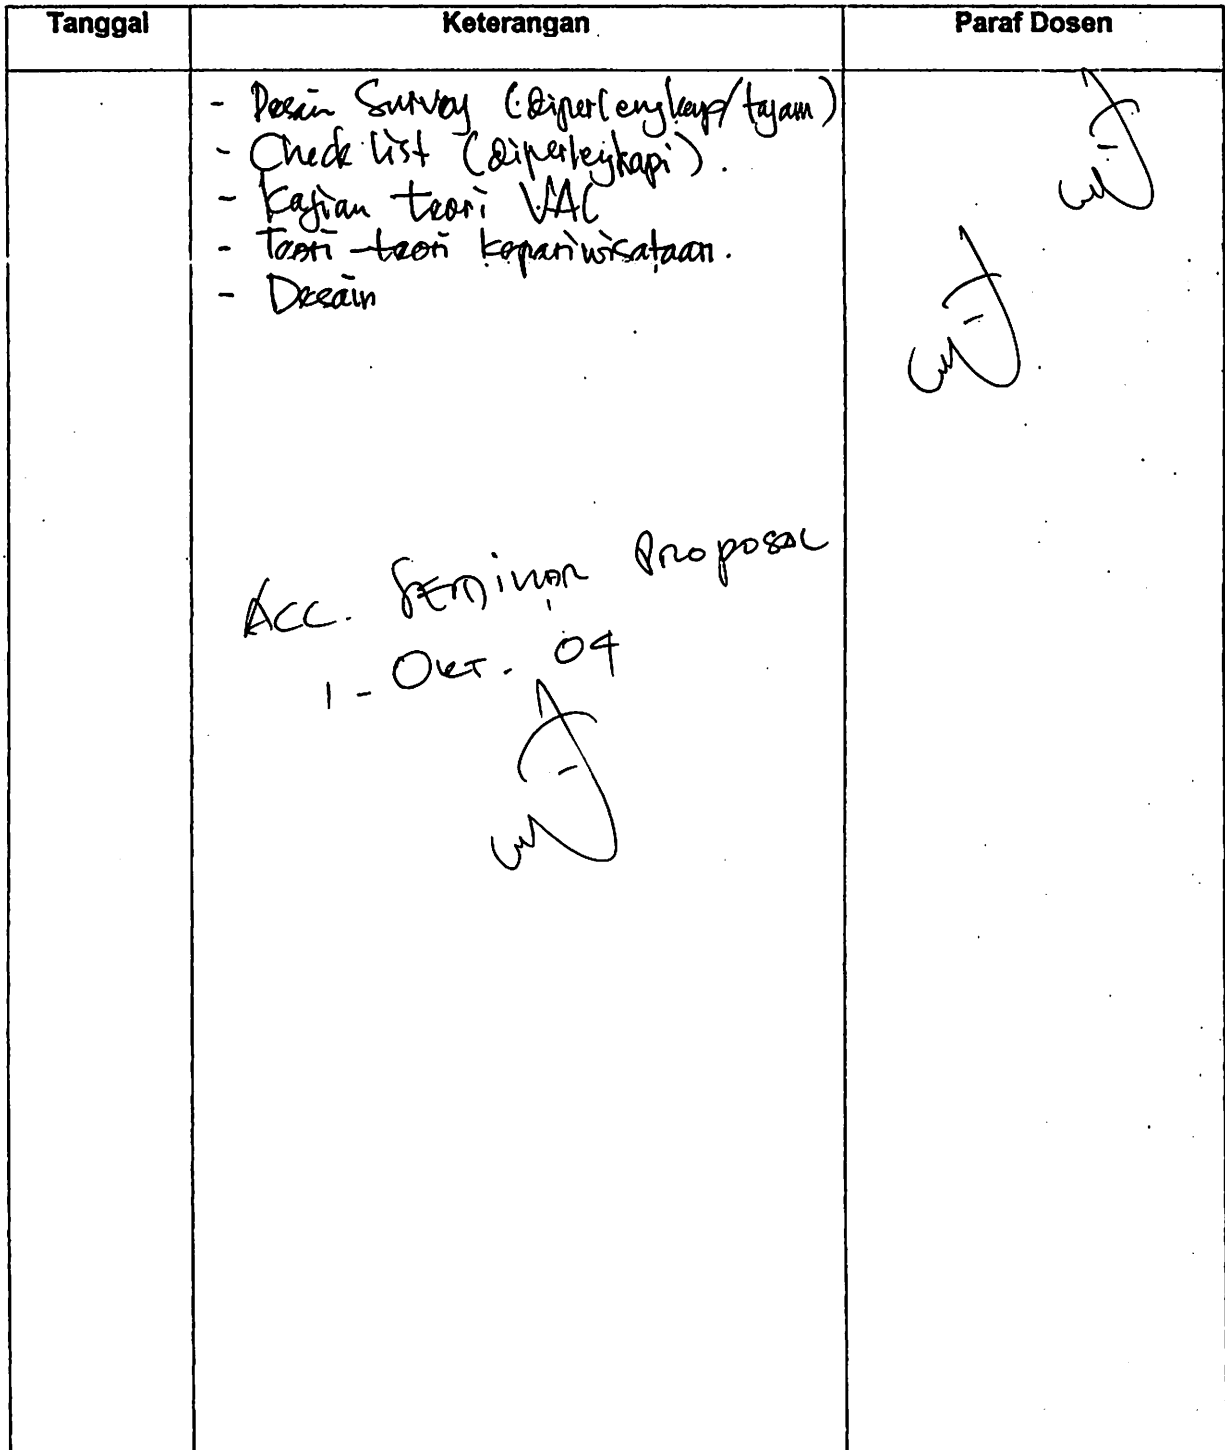 Tanggal Keterangan Paraf Dosen
- Desain Survey (diperlengkap/tajam)
- Check list (diperlengkapi).
- Kajian teori VAC
- Teori-teori kepariwisataan.
- Desain
Acc. Seminar Proposal
1 - Okt. 04